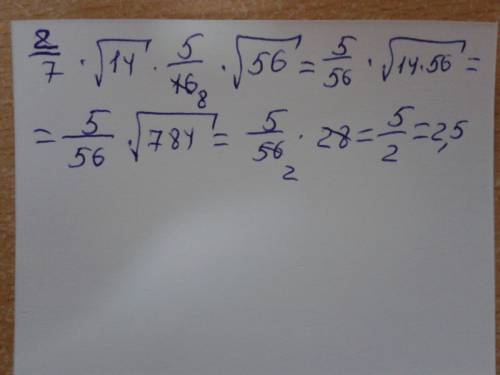 2/7 · √14 · 5/16 8 · √56 = 5/56 · √14·56 =
= 5/56 · √784 = 5/56 2 · 28 = 5/2 = 2,5